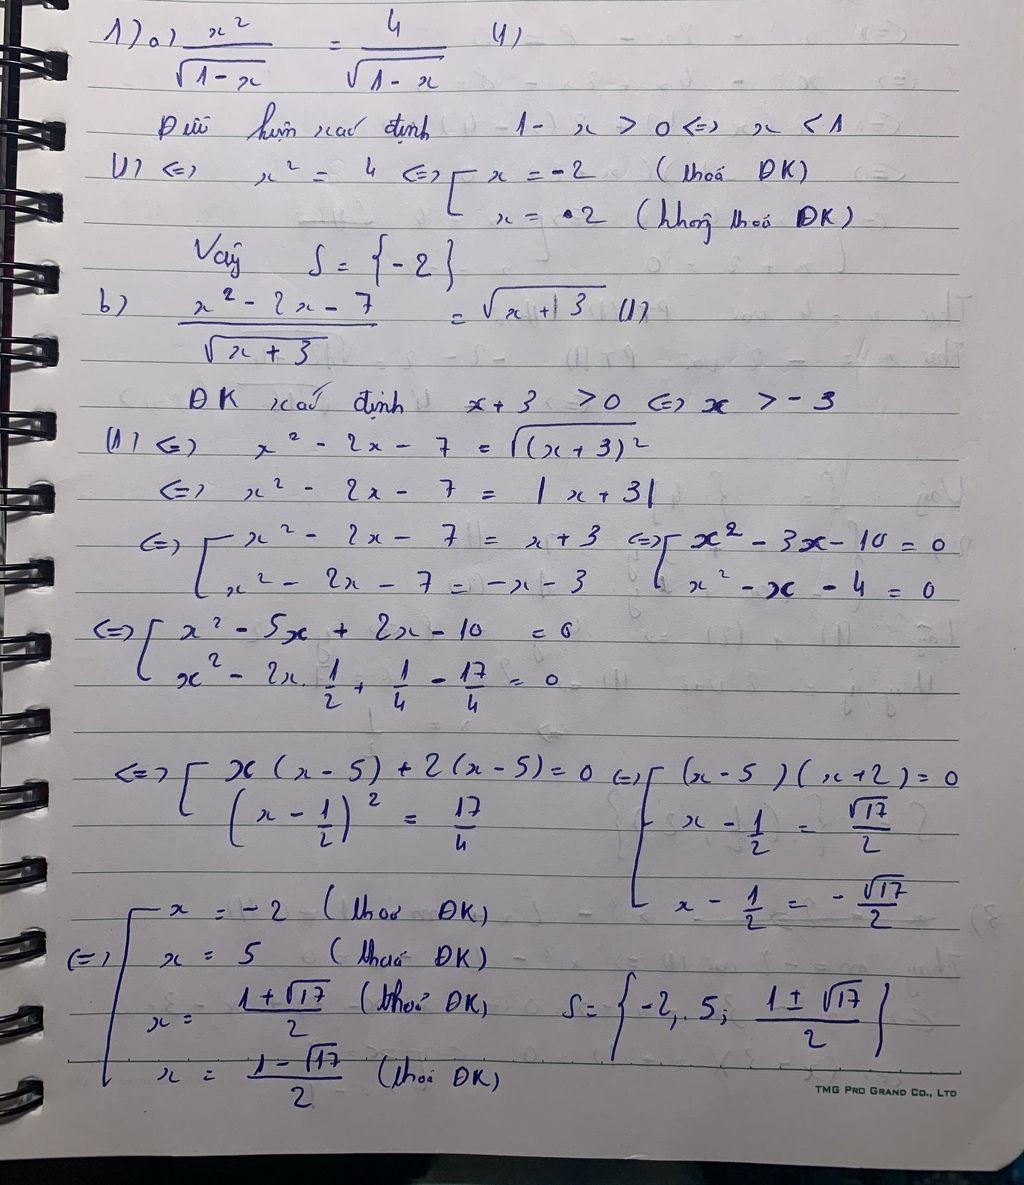 1) a) x²/√(1-x) = 4/√(1-x) (1)
Điều kiện xác định 1 - x > 0 <=> x < 1
(1) <=> x² = 4 <=> [ x = -2 (thoả ĐK)
x = 2 (không thoả ĐK)
Vậy S = {-2}
b) (x² - 2x - 7)/√(x+3) = √(x+3) (1)
ĐK xác định x + 3 > 0 <=> x > -3
(1) <=> x² - 2x - 7 = √(x+3)²
<=> x² - 2x - 7 = |x+3|
<=> [ x² - 2x - 7 = x + 3 <=> [ x² - 3x - 10 = 0
x² - 2x - 7 = -x - 3 x² - x - 4 = 0
<=> [ x² - 5x + 2x - 10 = 0
x² - 2x.1/2 + 1/4 - 17/4 = 0
<=> [ x(x-5) + 2(x-5) = 0 <=> [ (x-5)(x+2) = 0
(x - 1/2)² = 17/4 x - 1/2 = √17/2
x - 1/2 = -√17/2
<=> [ x = -2 (thoả ĐK)
x = 5 (thoả ĐK)
x = (1+√17)/2 (thoả ĐK) S = {-2, 5; (1±√17)/2}
x = (1-√17)/2 (thoả ĐK)
TMG PRO GRAND CO., LTD